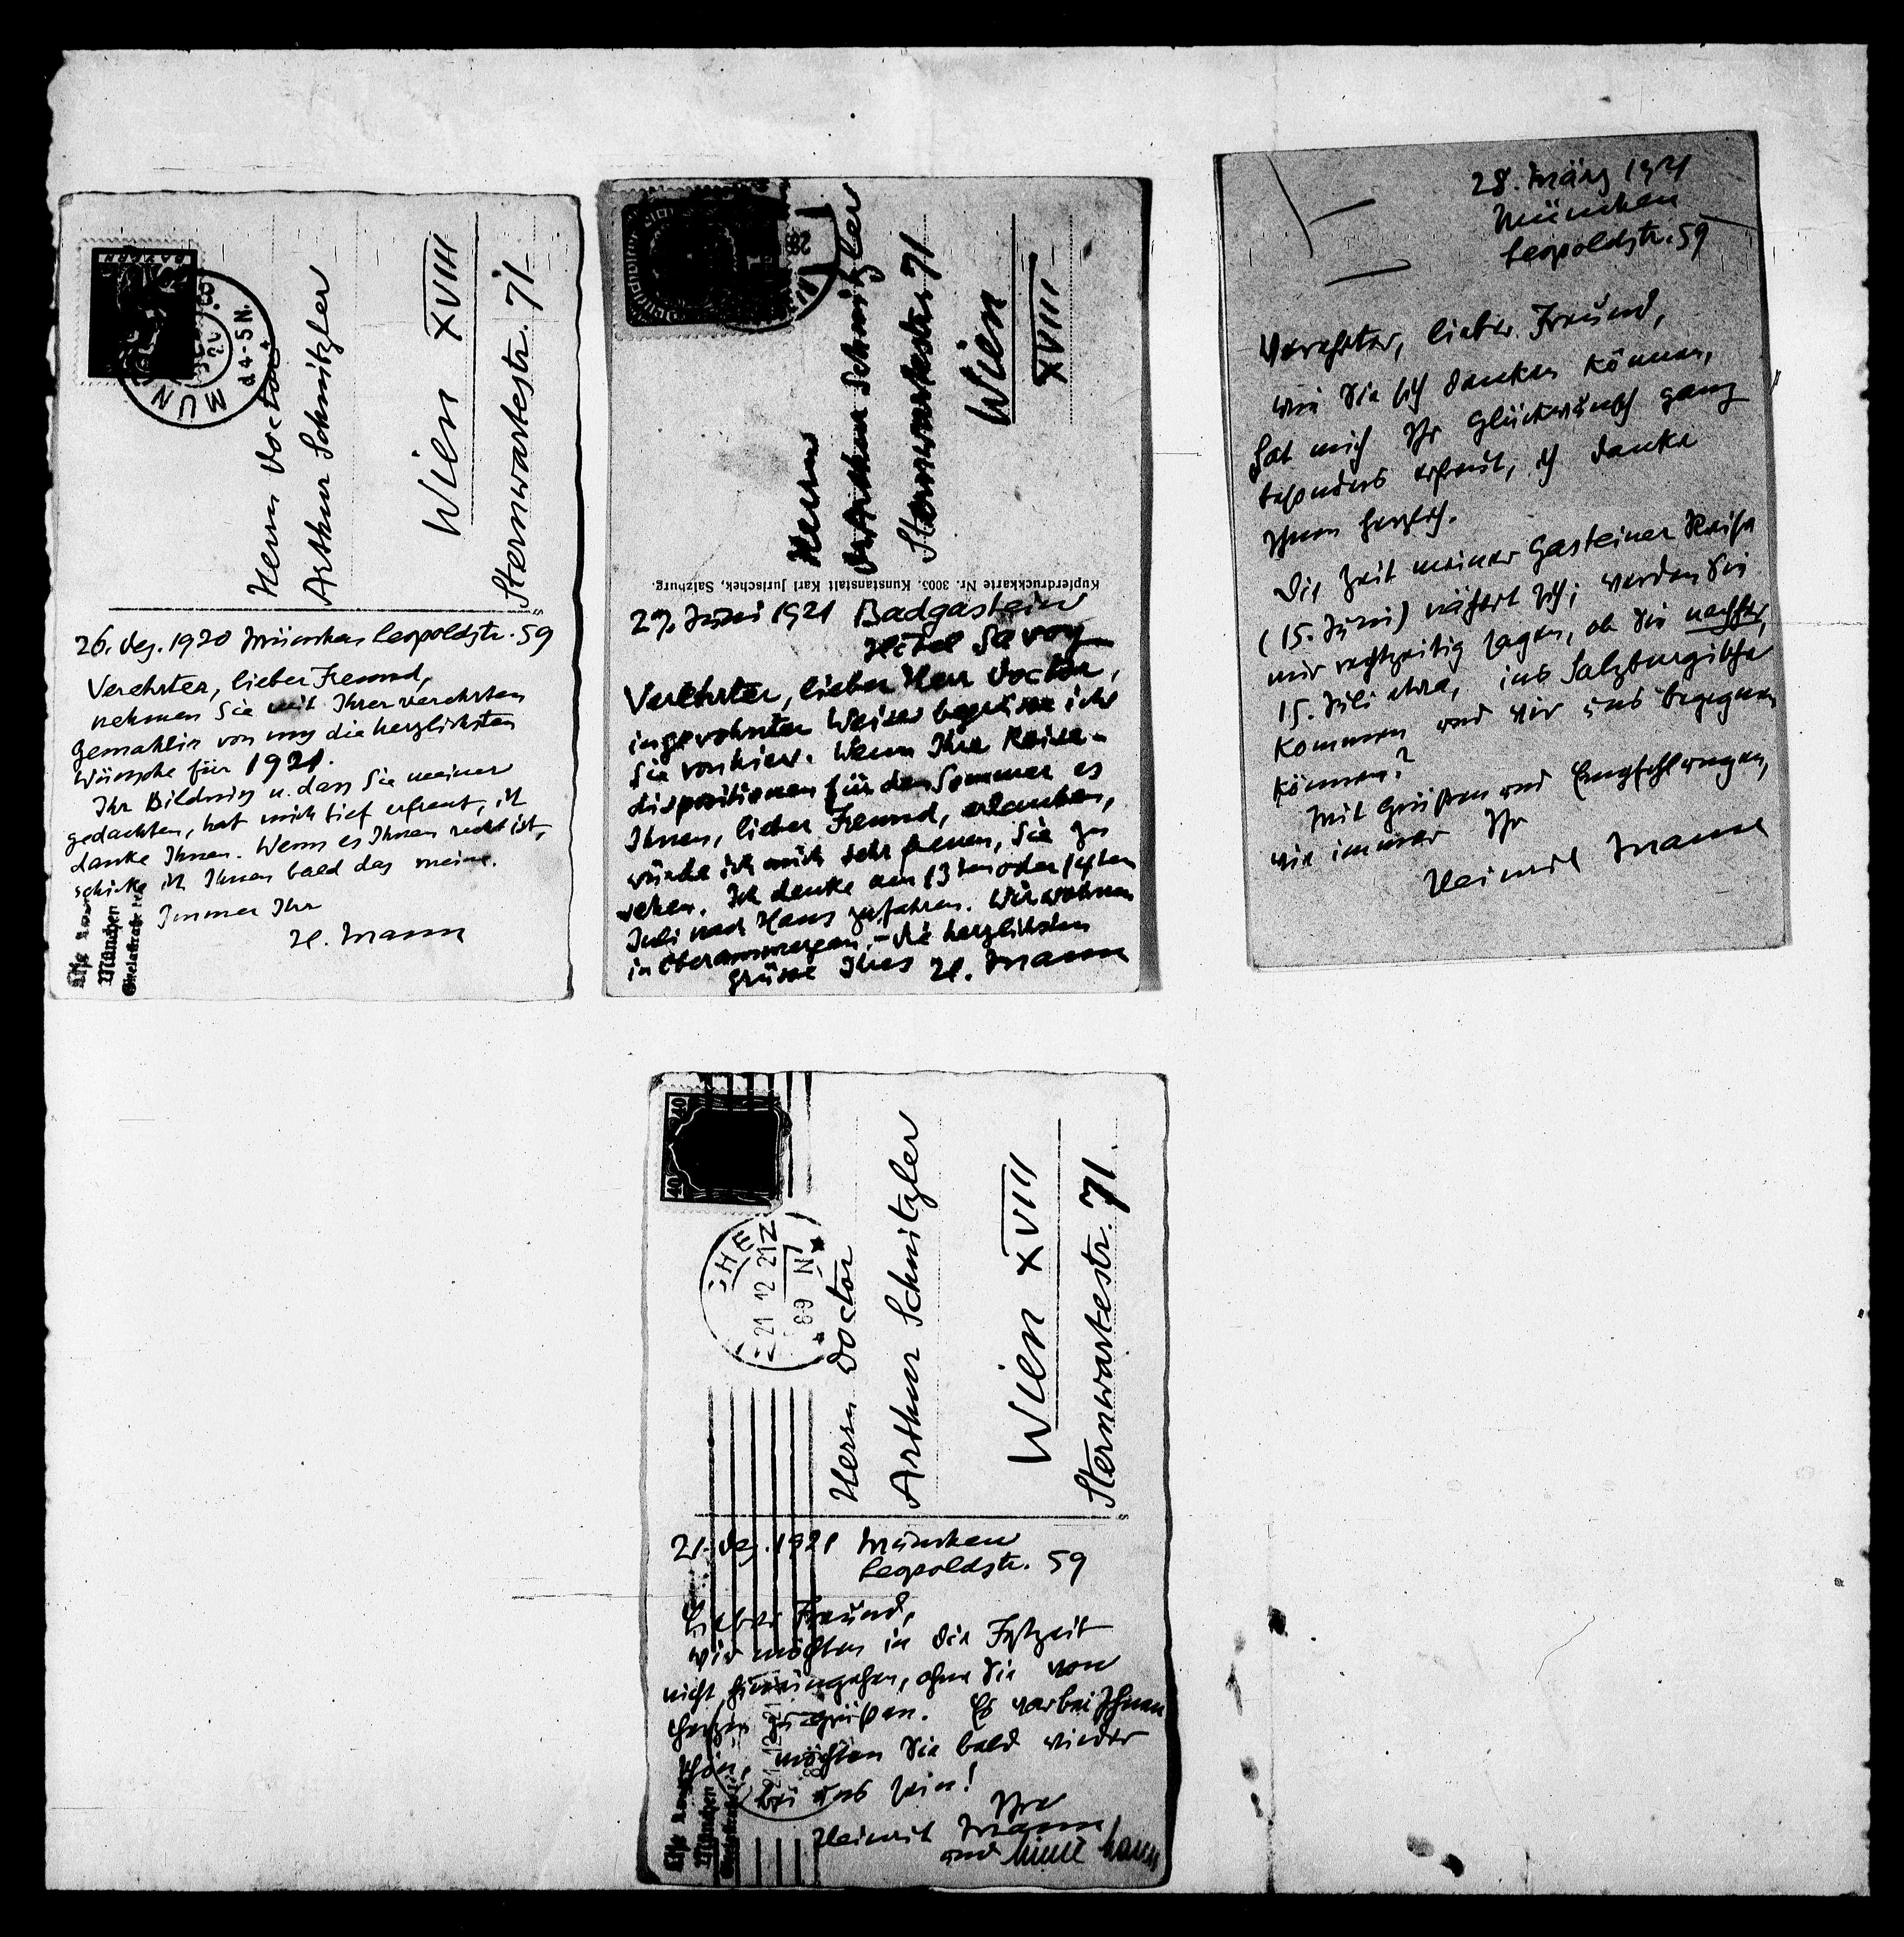 Herrn Doctor
Arthur Schnitzler
Wien XVIII
Sternwartestr. 71
26. Dez. 1920 München Leopoldstr. 59
Verehrter, lieber Freund,
nehmen Sie mit Ihrer verehrten
Gemahlin von uns die herzlichsten
Wünsche für 1921.
Ihr Bildniss u. dass Sie meiner
gedachten, hat mich tief erfreut, ich
danke Ihnen. Wenn es Ihnen recht ist,
schicke ich Ihnen bald das meine.
Immer Ihr
H. Mann
München
Herrn
Arthur Schnitzler
Sternwartestr 71
Wien
XVIII
Kupferdruckkarte Nr. 3005. Kunstanstalt Karl Jurischek, Salzburg.
27. Juni 1921 Badgastein
Hôtel Savoy
Verehrter, lieber Herr Doctor,
in gewohnter Weise begrüsse ich
Sie von hier. Wenn Ihre Reise-
dispositionen für den Sommer es
Ihnen, lieber Freund, erlauben,
würde ich mich sehr freuen, Sie zu
sehen. Ich denke am 13ten oder 14ten
Juli nach Haus zu fahren. Wir wohnen
in Oberammergau. – Die herzlichsten
Grüsse Ihres H. Mann
28. März 1921
München
Leopoldstr. 59
Verehrter, lieber Freund,
wie Sie sich denken können,
hat mich Ihr Glückwunsch ganz
besonders erfreut, ich danke
Ihnen herzlich.
Die Zeit meiner Gasteiner Reise
(15. Juni) nähert sich; werden Sie
mir rechtzeitig sagen, ob Sie nachher,
15. Juli etwa, ins Salzburgische
kommen und wir uns begegnen
können?
Mit Grüßen und Empfehlungen,
wie immer Ihr
Heinrich Mann
40
40
21 12 21
8-9 N
Herrn Doctor
Arthur Schnitzler
Wien XVIII
Sternwartestr. 71.
21. Dez. 1921 München
Leopoldstr. 59
Lieber Freund,
wir möchten in die Festzeit
nicht hineingehen, ohne Sie von
Herzen zu grüßen. Es war bei Ihnen
schön, möchten Sie bald wieder
bei uns sein!
Ihre
Heinrich Mann
und Mimi Mann
München